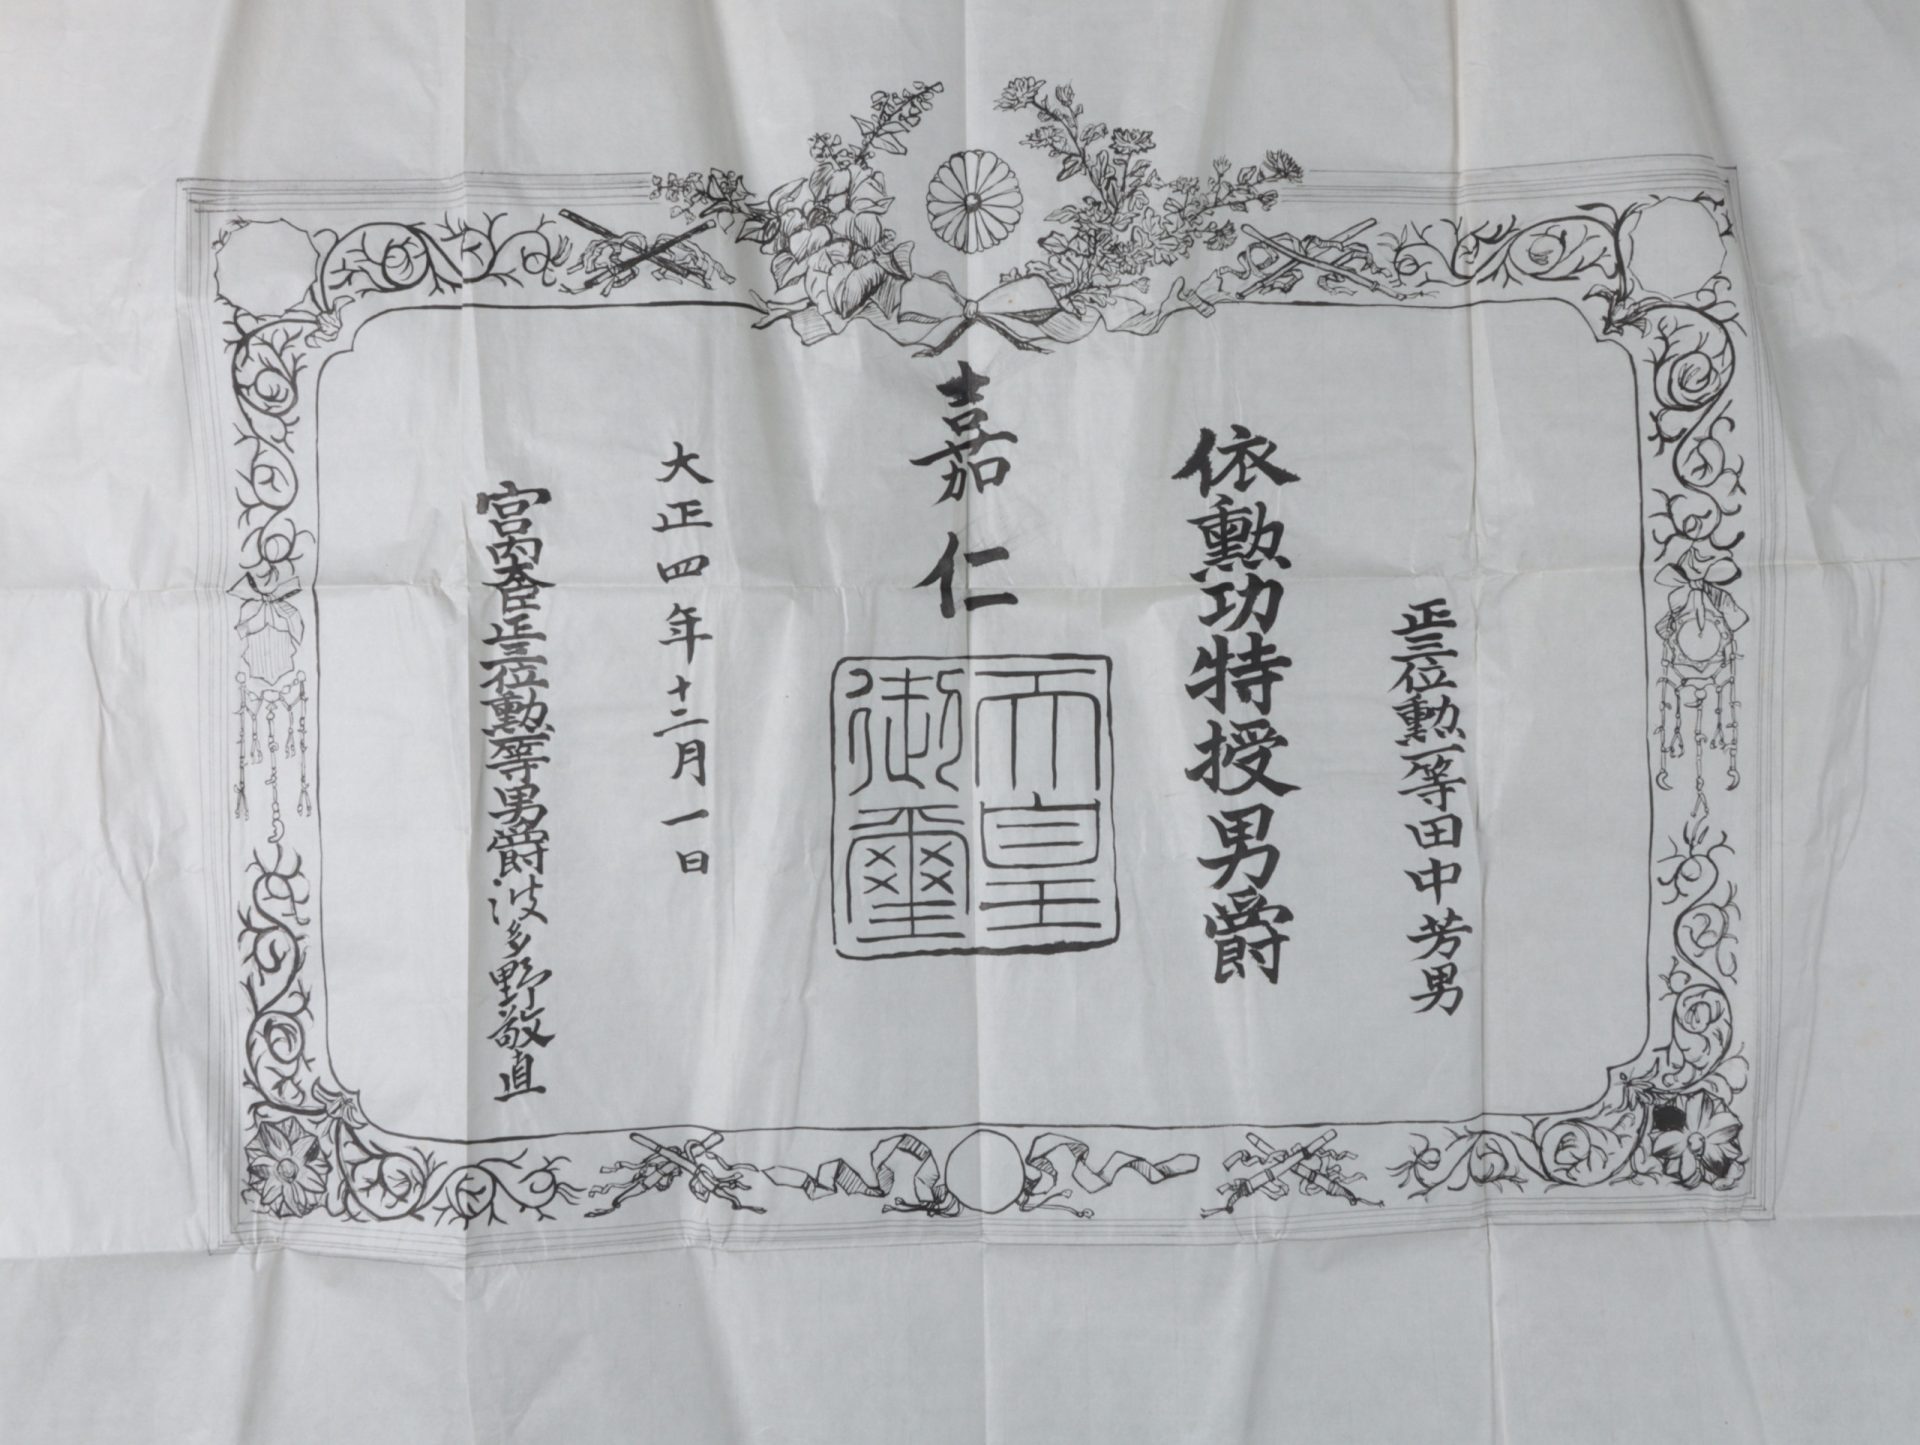 正三位勲一等田中芳男
依勲功特授男爵
嘉仁
天皇御璽
大正四年十二月一日
宮内大臣正三位勲一等男爵波多野敬直